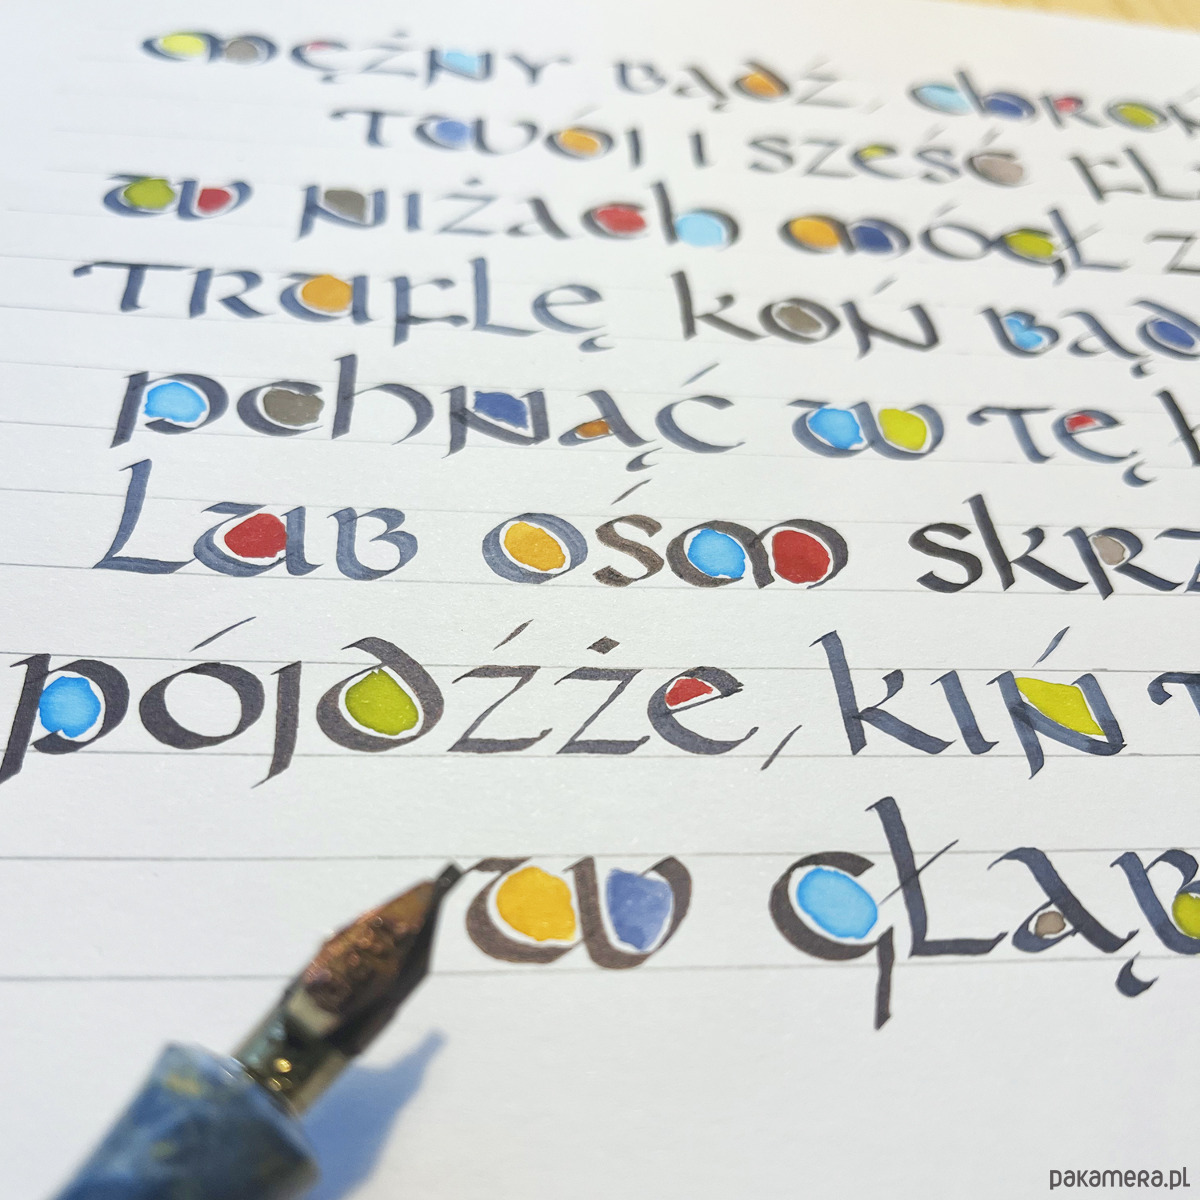 mężny bądź, chroń
twój i sześć fl
w niżach mógł z
truflę koń bąd
pchnąć w tę ł
lub ośm skrz
pójdźże, kiń t
w głąb
pakamera.pl